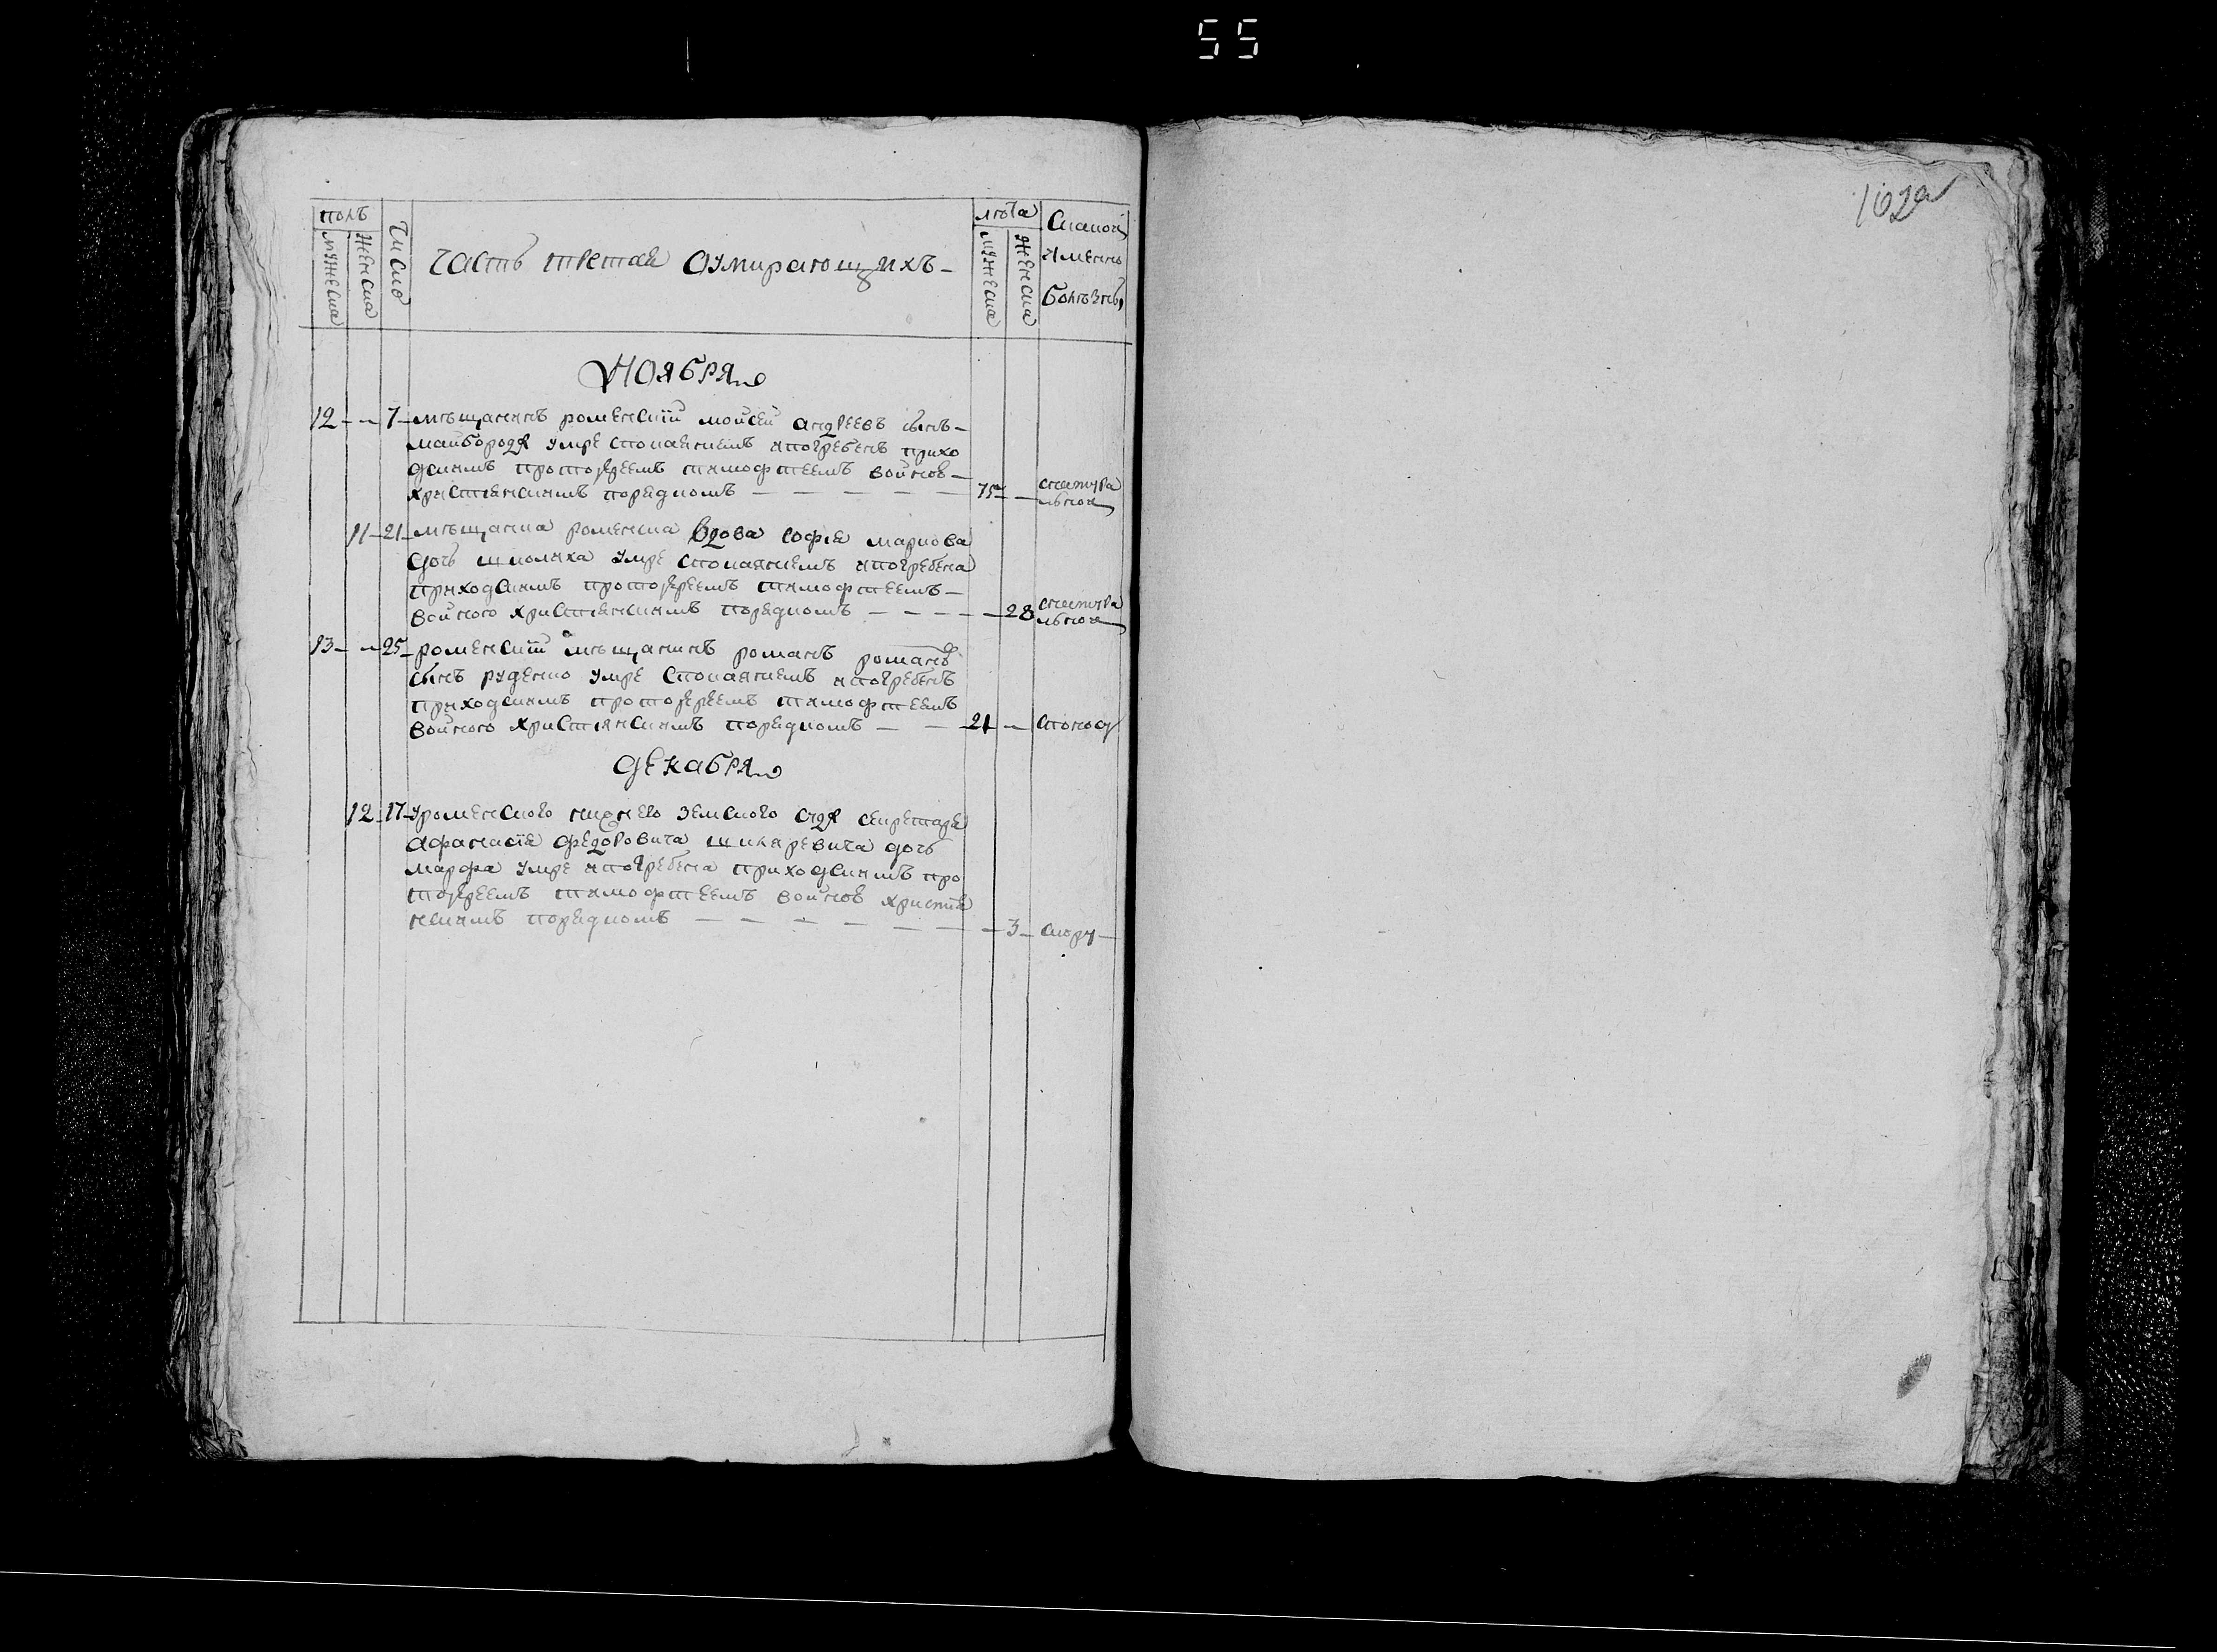 55
162а
полъ
мужеска
женска
Число
Часть третая о умирающихъ
лѣта
мужеска
женска
Какой
имянно
болѣзни
Ноября
12 - - 7 мѣщанинъ роменскій мойсей андреевъ сынъ
майборода умре спокаяниемъ и погребенъ прихо
дскимъ протоиереемъ тимофтеемъ войнов
християнскимъ порядкомъ 75 - снатура
льной
11 21 мѣщанка роменска вдова софия маркова
дочь шполяха умре спокаяниемъ и погребена
приходскимъ протоиереемъ тимофтеемъ
войного християнскимъ порядкомъ - 28 снатура
льной
13 - 25 роменскій мѣщанинъ романъ романов
сынъ руденко умре спокаяниемъ и погребенъ
приходскимъ протоиереемъ тимофтеемъ
войного християнскимъ порядкомъ 21 - споносу
Декабря
12 17 у роменского нижнего земского суда секретаря
афанасія федоровича дочь
марфа умре и погребена приходскимъ про
тоиереемъ тимофтеемъ войнов христия
нскимъ порядкомъ - 3 - скору